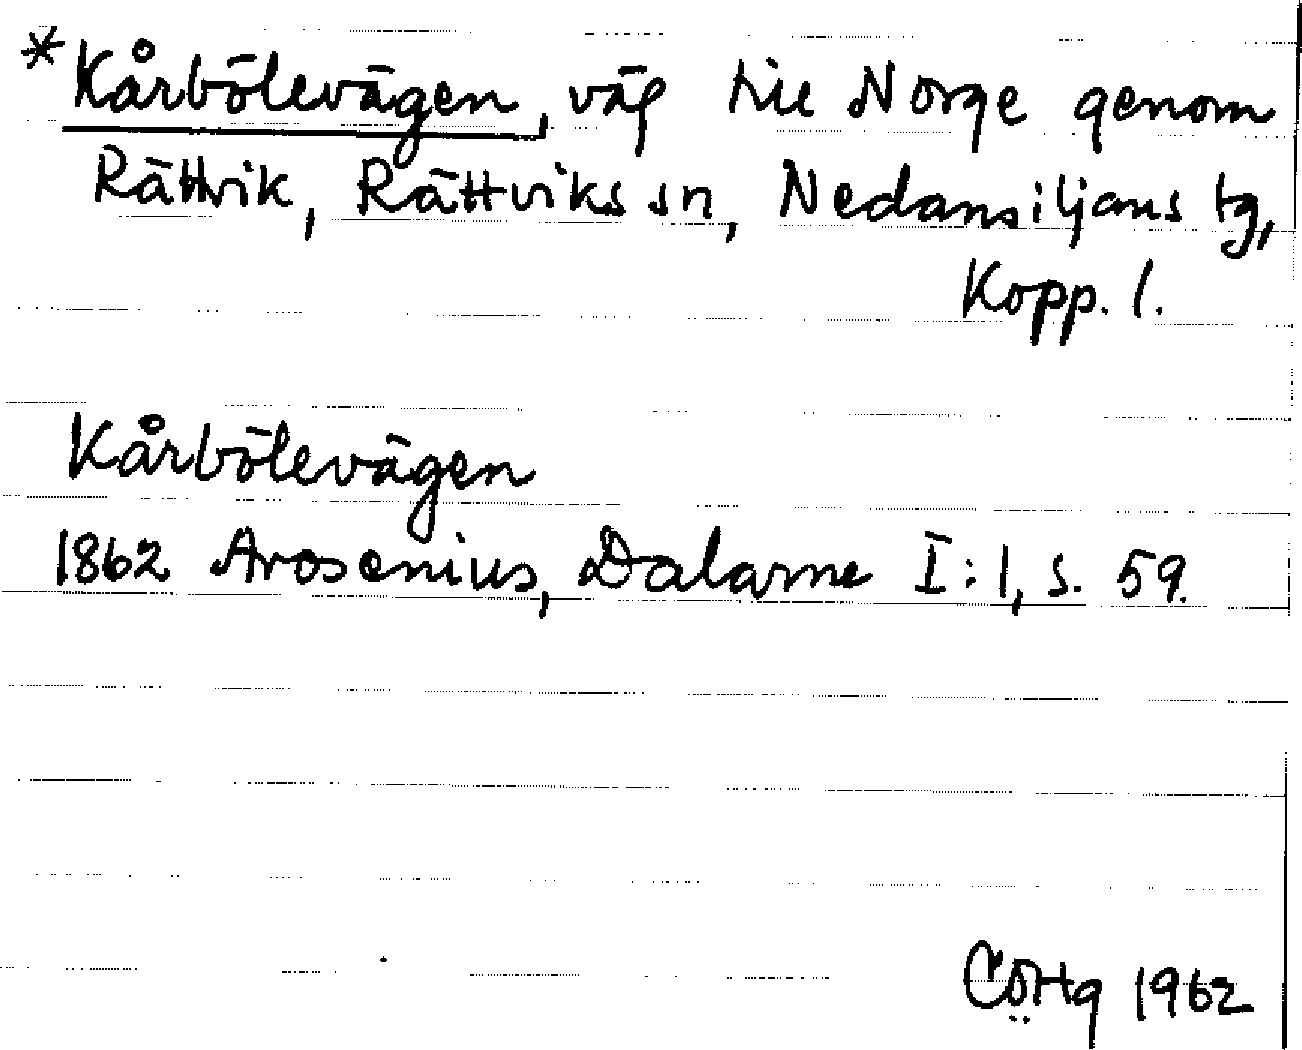 *Kårbölevägen, väg till Norge genom
Rättvik, Rättviks sn, Nedansiljans tg,
Kopp. l.
Kårbölevägen
1862 Arosenius, Dalarne I:1, s. 59.
CÖHg 1962